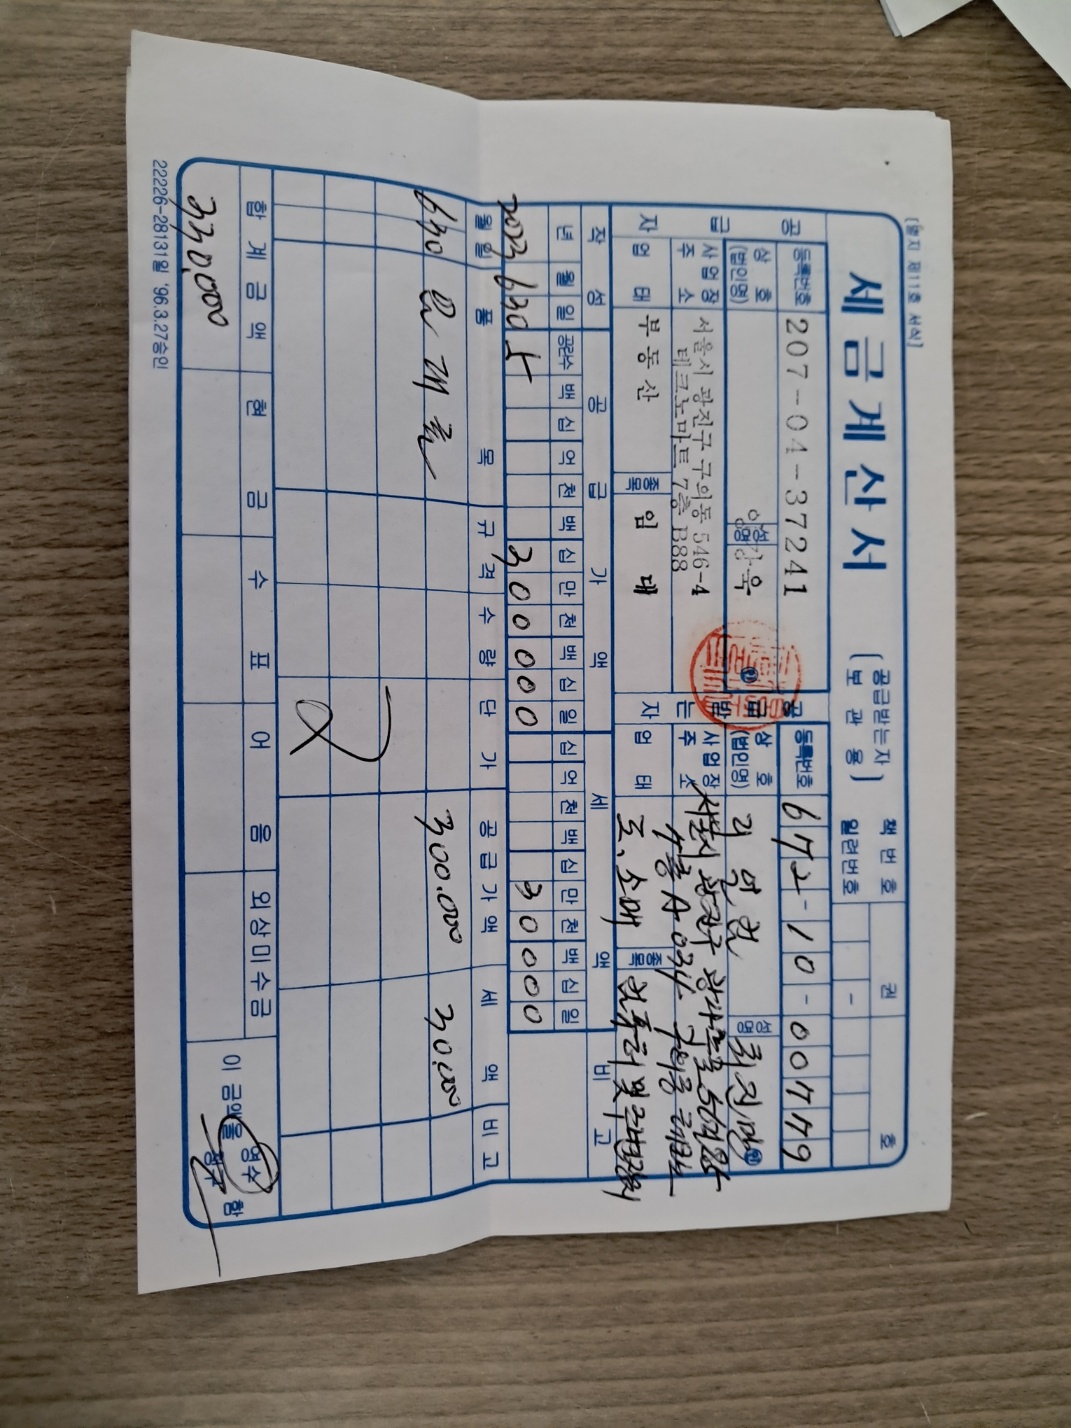 [별지 제11호 서식]
세금계산서 (공급받는자 보관용)
책번호 권 호
일련번호 -
공급자
등록번호 207-04-37241
상호(법인명) 성명 옥
사업장주소 서울시 광진구 구의동 546-4
테크노마트 7층 B88
업태 부동산 종목 임대
공급받는자
등록번호 672-10-00779
상호(법인명) 성명
사업장주소
업태 도.소매 종목 컴퓨터 및 주변
작성 공급가액 세액 비고
년 월 일 공란수 백 십 억 천 백 십 만 천 백 십 일 십 억 천 백 십 만 천 백 십 일
2023 6 30 5 300000 30000
월 일 품목 규격 수량 단가 공급가액 세액 비고
6 30 임대료 300.000 30.000
합계금액 현금 수표 어음 외상미수금
330,000
이 금액을 영수 청구 함
22226-28131일 '96.3.27승인